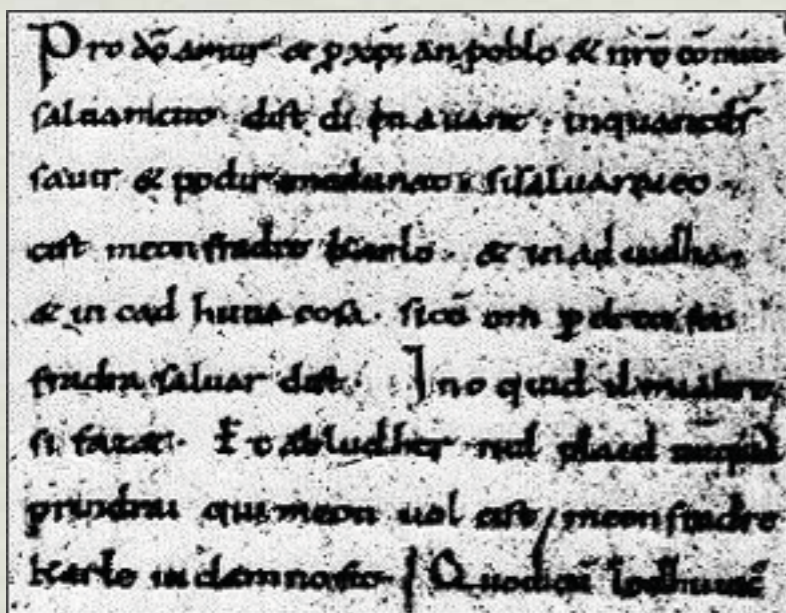 Pro dō amur & ꝑ xp̄ian poblo & nrō cōmun
saluament. dist di in auant. inquantds
sauir & podir medunat. sisaluaraieo.
cist meonfradre Karlo. & in adiudha
& in cad huna cosa. sicū om ꝑ dreit son
fradra saluar dist. Ino quid il mialtre
si fazet. Et abludher nul plaid nūquā
prindrai qui meon uol cist meonfradre
Karle in damno sit. Quodcū lodhuuic